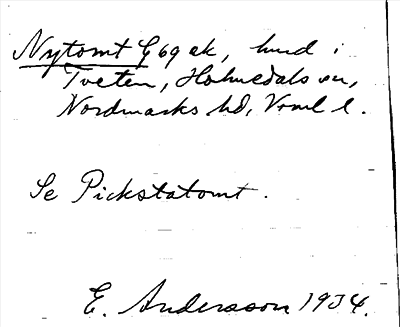 Nytomt G 69 ek, hmd i
Tveten, Holmedals sn,
Nordmarks hd, Vrml l.
Se Pickstatomt.
E. Andersson 1934.